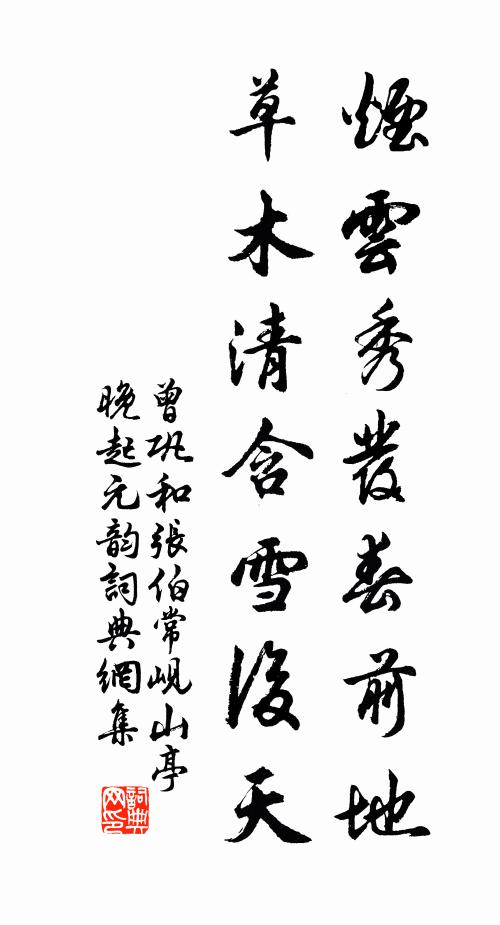 煙雲秀發春前地
草木清含雪後天
曾巩和張伯常峴山亭
晚起元韵詞典網集
詞典
网印